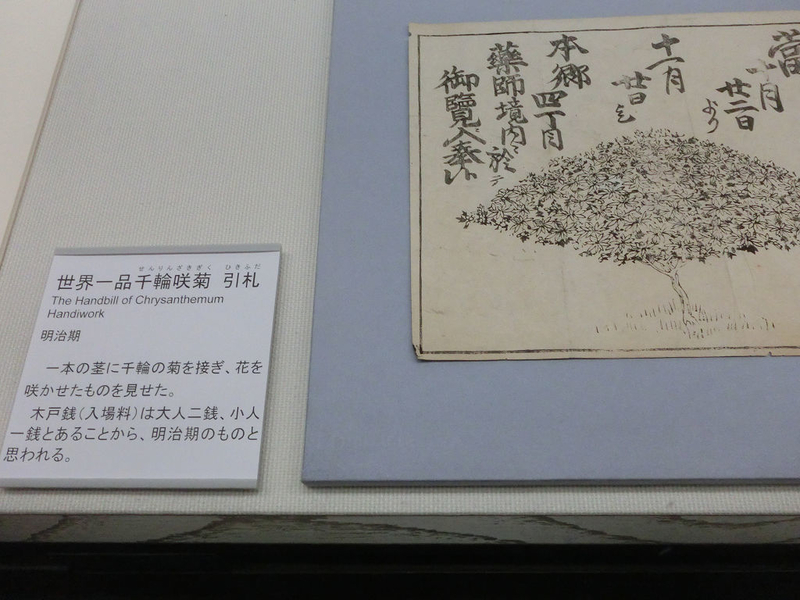 世界一品千輪咲菊 引札
せんりんざきぎく ひきふだ
The Handbill of Chrysanthemum
Handiwork
明治期
一本の茎に千輪の菊を接ぎ、花を
咲かせたものを見せた。
木戸銭(入場料)は大人二銭、小人
一銭とあることから、明治期のものと
思われる。
十月
廿二日
より
十一月
廿日
本郷四丁目
藥師境内ニ於テ
御覽入奉